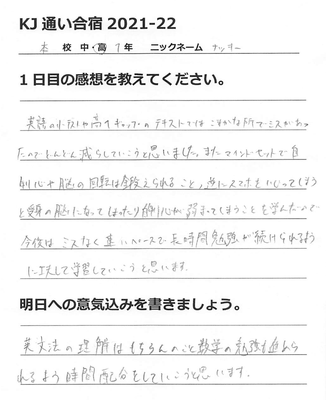 KJ通い合宿 2021-22
本 校 中・高 1年 ニックネーム ナッキー
1日目の感想を教えてください。
英語の小テストや高1キャップのテキストでは こまかな所でミスがあっ
たのでどんどん減らしていこうと思いました。また マインドセットで自
制心や脳の回転は鍛えられること、逆にスマホをいじってしまう
と受身の脳になってしまったり自制心が弱まってしまうことを学んだので
今後は ミスなく速いペースで長時間勉強が続けられるよう
に工夫して学習していこうと思います。
明日への意気込みを書きましょう。
英文法の理解はもちろんのこと数学の勉強も進めら
れるよう時間配分をしていこうと思います。